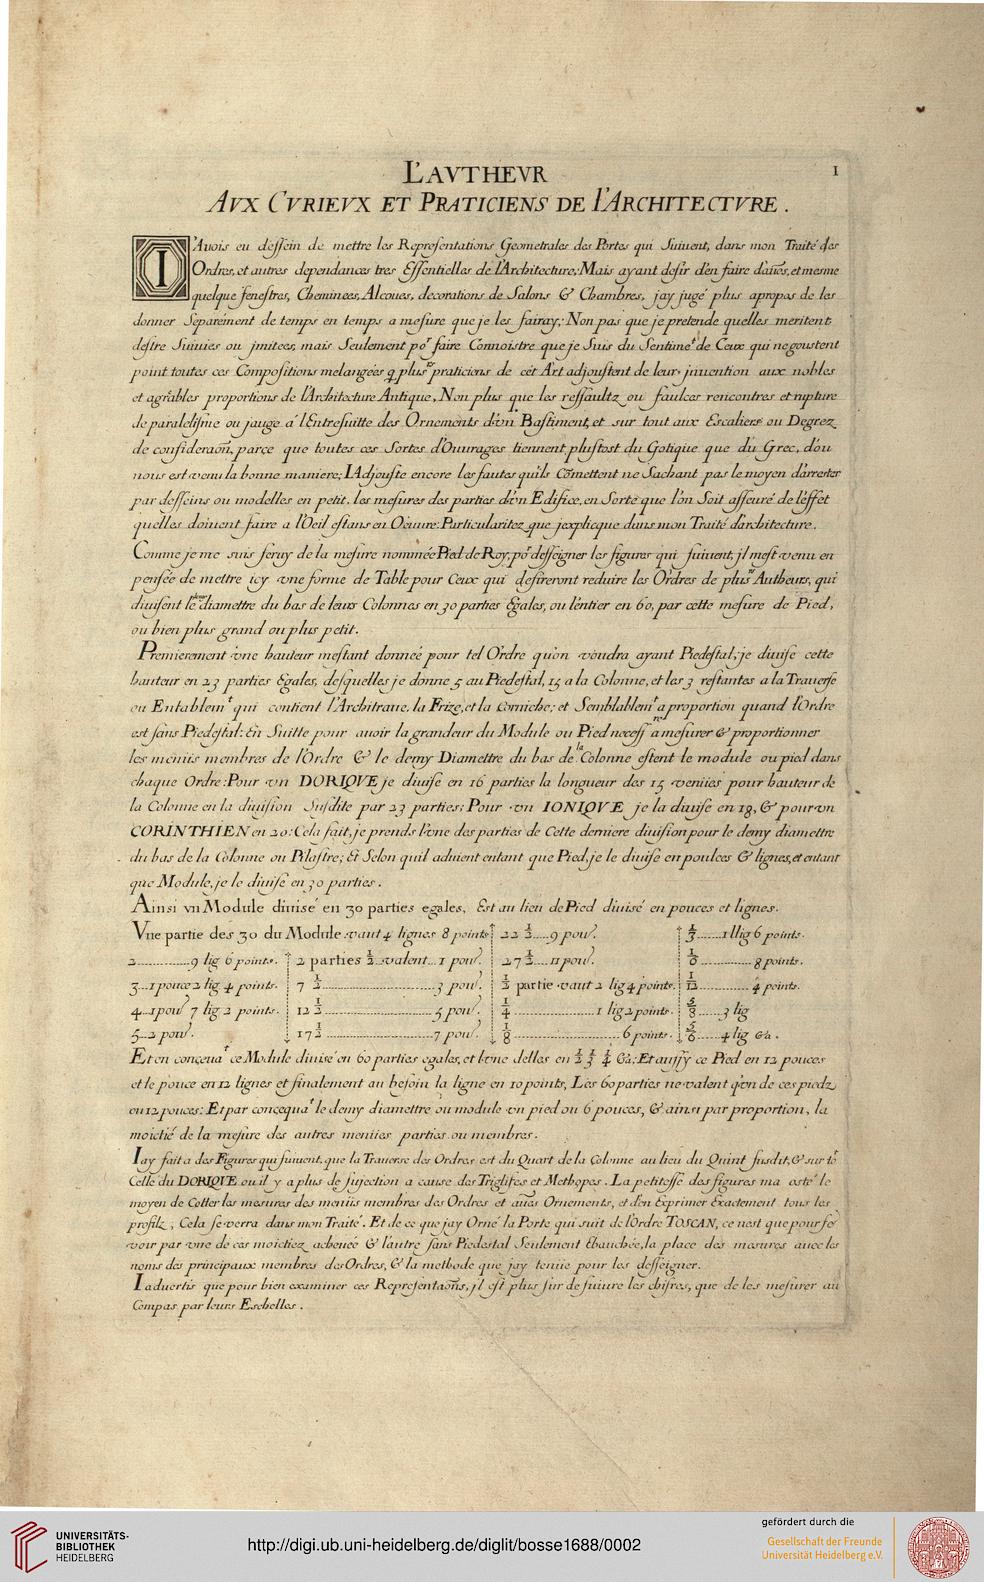 L'AVTHEVR
1
AVX CVRIEVX ET PRATICIENS DE l'ARCHITECTVRE .
I'Auois eu deſſein de mettre les Repreſentations Geometrales des Portes qui Suiuent, dans mon Traité des
Ordres, et autres dependances tres Eſſentielles de l'Architecture; Mais ayant deſir d'en faire d'au͠es, et mesme
quelque feneſtres, Cheminees, Alcoues, decorations de Salons & Chambres, j'ay jugé plus apropos de les
donner Separeḿent de temps en temps a meſure que je les fairay; Non pas que je pretende quelles meritent
deſtre Suiuies ou jmitees, mais Seulement poʳ faire Connoistre que je Suis du Sentimeᵗ de Ceux qui ne goustent
point toutes ces Compoſitions melangées q̨ pluſʳˢ praticiens de cét Art adjouſtent de leur jnuention aux nobles
et agreables proportions de l'Architecture Antique, Non plus que les reſſaultz ou faulces rencontres et rupture
de paraleliſme ou jauge a l'Entreſuitte des Ornements d'vn Baſtiment, et sur tout aux Escaliers ou Degrez
de conſideraõn, parce que toutes ces Sortes d'Ouurages tiennent pluſtost du Gotique que du Grec, d'ou
nous est venu la bonne maniere; I'Adjouſte encore les fautes qu'ils Cõmettent ne Sachant pas le moyen d'arrester
par deſſeins ou modelles en petit, les meſures des parties d'vn Edifice, en Sorte que l'on Soit aſſeuré de l'eſſet
qu'elles doiuent faire a l'Oeil eſtans en Oeuure: Particularitez que jexplicque dans mon Traité d'architecture.
Comme je me suis ſeruy de la meſure nommée Pied de Roy, poʳ deſſeigner les figures qui ſuiuent, jl m'eſt venu en
penſée de mettre icy vne forme de Table pour Ceux qui deſireront reduire les Ordres de pluſʳˢ Autheurs, qui
diuiſent le demy diamettre du bas de leurs Colonnes en 30 parties Egales, ou l'entier en 60, par cette meſure de Pied,
ou bien plus grand ou plus petit.
Premierement vne hauteur m'estant donneé pour tel Ordre qu'on voudra ayant Piedeſtal, je diuiſe cette
hauteur en 23 parties Egales, deſquelles je donne 5 au Piedeſtal, 15 a la Colonne, et les 3 reſtantes a la Trauerſe
ou Entablemᵗ qui contient l'Architraue, la Frize, et la Corniche; et Semblablemᵗ a proportion quand l'Ordre
est ſans Piedeſtal: En Suitte pour auoir la grandeur du Module ou Pied neceſſʳᵉ a meſurer & proportionner
les menüs membres de l'Ordre & le demy Diamettre du bas de la Colonne eſtent le module ou pied dans
chaque Ordre: Pour vn DORIQVE je diuiſe en 16 parties la longueur des 15 venües pour hauteur de
la Colonne en la diuiſion Suſdite par 23 parties: Pour vn IONIQVE je la diuiſe en 18, & pour vn
CORINTHIEN en 20: Cela fait, je prends l'vne des parties de Cette derniere diuiſion pour le demy diamettre
du bas de la Colonne ou Pilaſtre; Et Selon qu'il aduient entant que Pied, je le diuiſe en poulces & lignes, et entant
que Module, je le diuiſe en 30 parties.
Ainsi vn Module diuisé en 30 parties egales, Est au lieu de Pied diuisé en pouces et lignes.
Vne partie des 30 du Module vaut 4 lignes 8 points
2............9 lig 6 points.
3...1 pouce 2 lig 4 points.
4...1 pouᶜ 7 lig 2 points.
5...2 pouᶜ.
2 parties ½ valent...1 pouᶜ.
7 ½..................3 pouᶜ.
12 ½.................5 pouᶜ.
17 ½.................7 pouᶜ.
22 ½.....9 pouᶜ.
27 ½....11 pouᶜ.
½ partie vaut 2 lig 4 points.
¼...............1 lig 2 points.
⅛...................6 points.
⅓......1 lig 6 points.
⅙............8 points.
1/12............4 points.
⅝.....3 lig
⅚.....4 lig &a.
Et en conçequaᵗ ce Module diuisé en 60 parties egales, et l'vne d'elles en ½ ⅓ ¼ &a; Et auſſy ce Pied en 12 pouces
et le pouce en 12 lignes et finalement au beſoin la ligne en 10 points, Les 60 parties ne valent q'vn de ces piedz
ou 12 pouces: Et par conçequaᵗ le demy diamettre ou module vn pied ou 6 pouces, & ainsi par proportion, la
moictié de la meſure des autres menües parties ou membres.
I'ay fait a des Figures qui ſuiuent, que la Trauerse des Ordres est du Quart de la Colonne au lieu du Quint ſusdit, & sur toᵗ
Celle du DORIQVE ou il y a plus de ſujection a cause des Triglifes et Methopes. La petiteſſe des figures m'a osté le
moyen de Cotter les mesures des menüs membres des Ordres et au͠es Ornements, et d'en Exprimer Exactement tous les
profilz, Cela ſe verra dans mon Traité. Et de ce que j'ay Orné la Porte qui suit de l'Ordre TOSCAN, ce n'est que pour fᵉ
voir par vne de ces moictiez acheueé & l'autre ſans Piedestal Seulement Ebauchée, la place des mesures auec les
noms des principaux membres des Ordres, & la methode que j'ay tenüe pour les deſſeigner.
I'aduertis que pour bien examiner ces Repreſentaõns, jl eſt plus ſur de ſuiure les chifres, que de les meſurer au
Compas par leurs Eschelles.
UNIVERSITÄTS-
BIBLIOTHEK
HEIDELBERG
http://digi.ub.uni-heidelberg.de/diglit/bosse1688/0002
gefördert durch die
Gesellschaft der Freunde
Universität Heidelberg e.V.